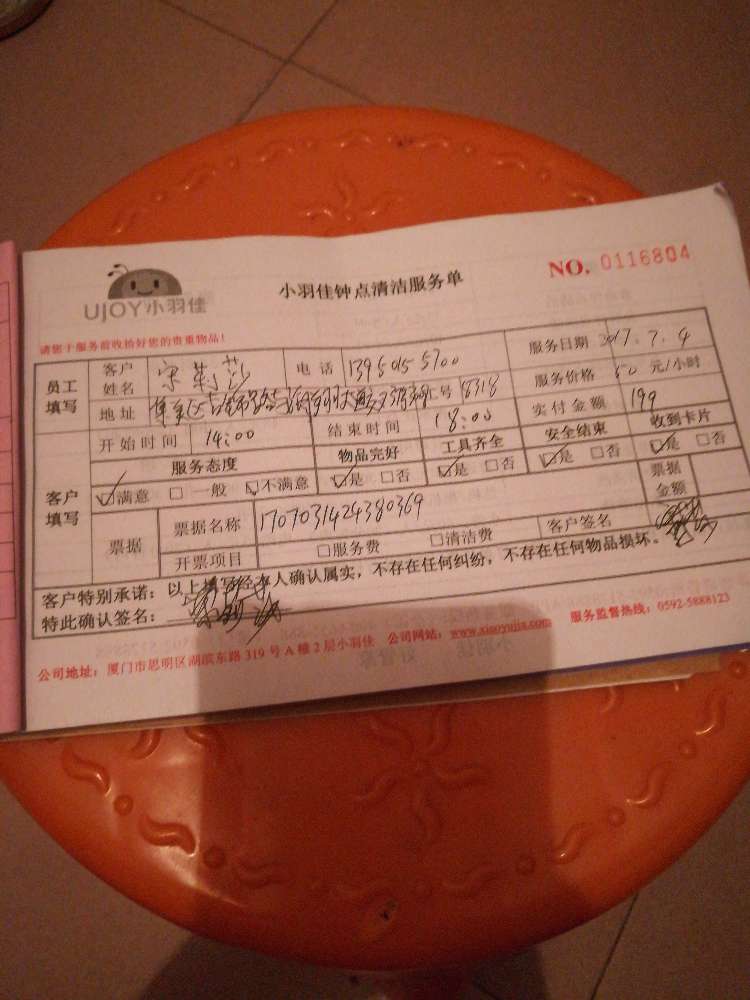 UJOY小羽佳
小羽佳钟点清洁服务单
NO. 0116804
请您于服务前收拾好您的贵重物品!
员工填写 客户姓名 宋莉莎 电话 服务日期 2017.7.4
地址 号 8318 服务价格 50 元/小时
实付金额 199
客户填写 开始时间 14:00 结束时间 18:00
服务态度 物品完好 工具齐全 安全结束 收到卡片
满意 一般 不满意 是 否 是 否 是 否 是 否
票据 票据名称 1707031424380369 票据金额
开票项目 服务费 清洁费 客户签名
客户特别承诺:以上填写经本人确认属实,不存在任何纠纷,不存在任何物品损坏。
特此确认签名:
公司地址:厦门市思明区湖滨东路 319 号 A 楼 2 层小羽佳 公司网站:www.xiaoyujia.com 服务监督热线:0592-5888123